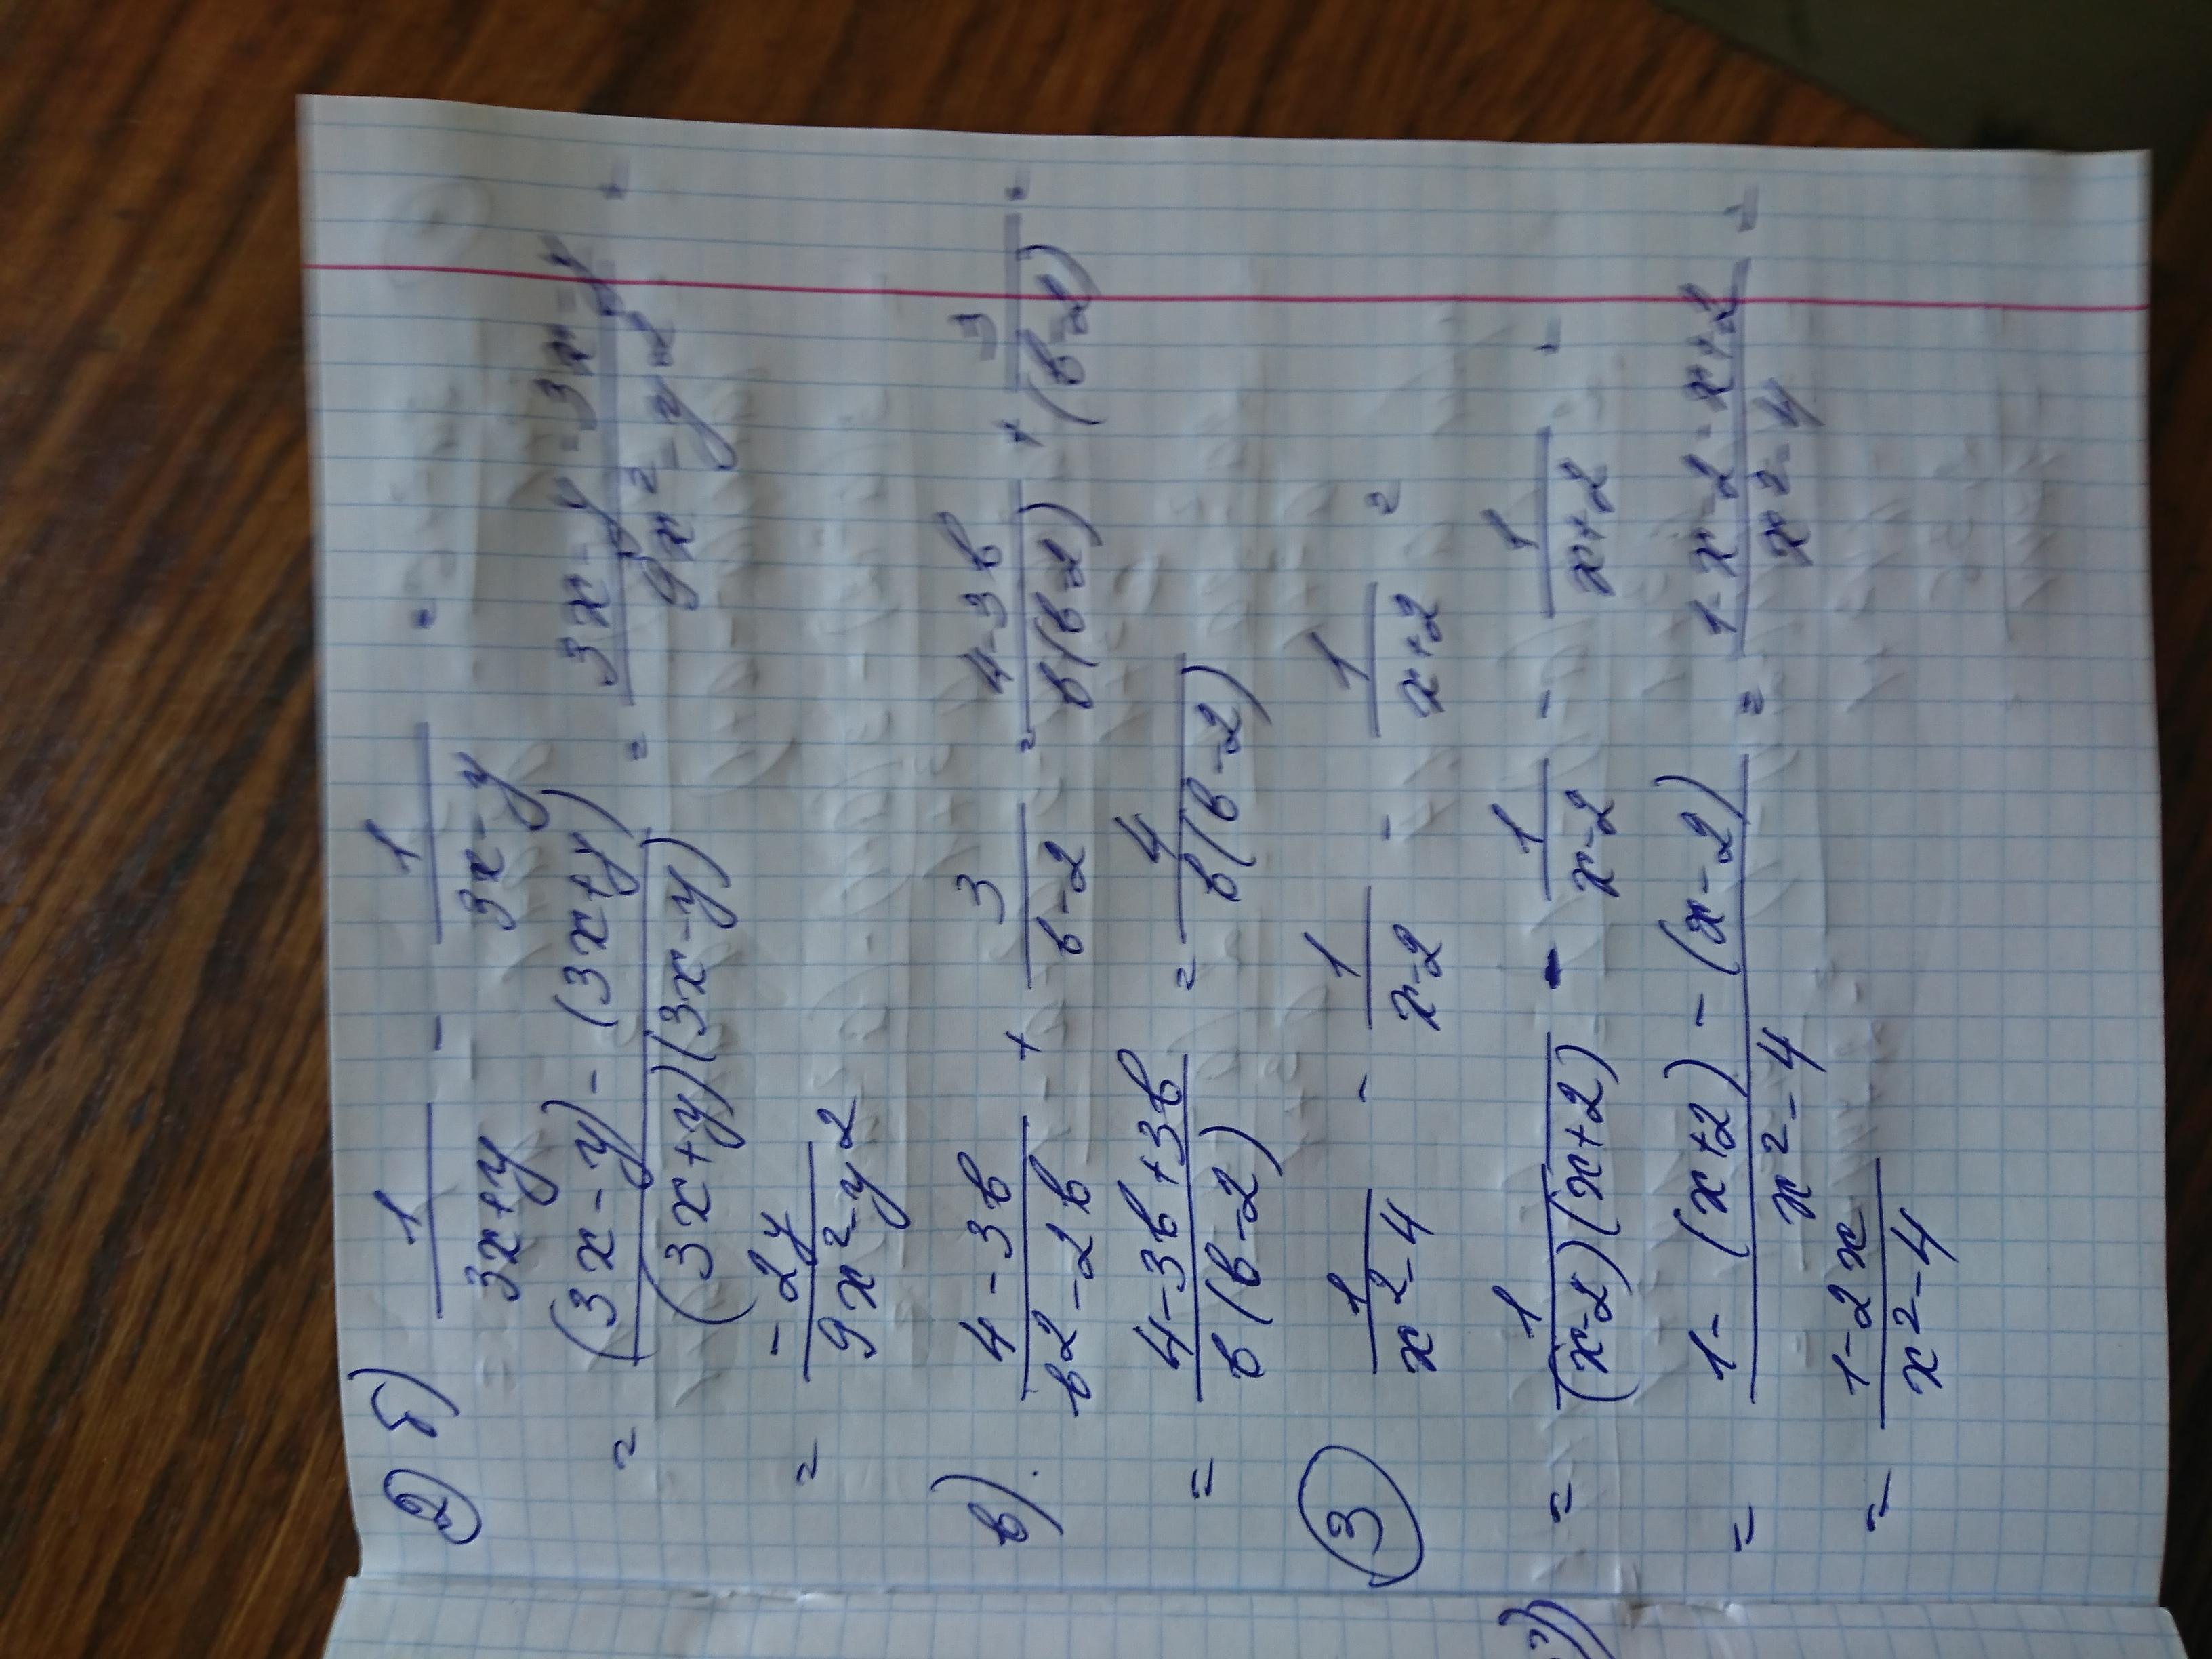 ② б) 1/(3x+y) - 1/(3x-y) =
= ((3x-y)-(3x+y))/((3x+y)(3x-y)) = (3x-y-3x-y)/(9x²-y²) =
= (-2y)/(9x²-y²)
в). (4-3в)/(в²-2в) + 3/(в-2) = (4-3в)/(в(в-2)) + 3/(в-2) =
= (4-3в+3в)/(в(в-2)) = 4/(в(в-2))
③ 1/(x²-4) - 1/(x-2) - 1/(x+2) =
= 1/((x-2)(x+2)) - 1/(x-2) - 1/(x+2) =
= (1-(x+2)-(x-2))/(x²-4) = (1-x-2-x+2)/(x²-4) =
= (1-2x)/(x²-4)